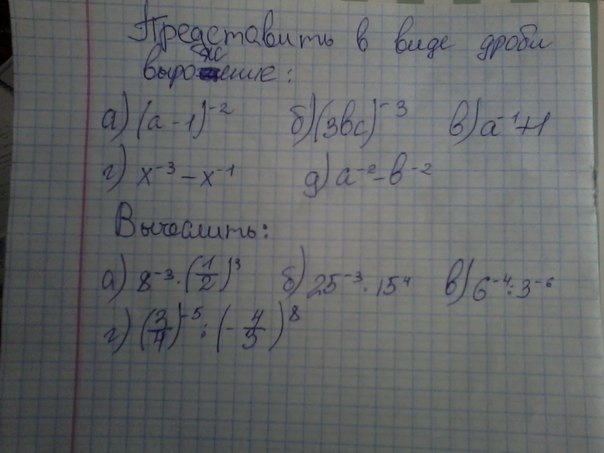 Представить в виде дроби
выражение:
а) (a - 1)⁻² б) (3bc)⁻³ в) a⁻¹+1
г) x⁻³ - x⁻¹ д) a⁻² - b⁻²
Вычеслить:
а) 8⁻³ · (1/2)³ б) 25⁻³ · 15⁴ в) 6⁻⁴ : 3⁻⁶
г) (3/4)⁻⁵ : (-4/3)⁸